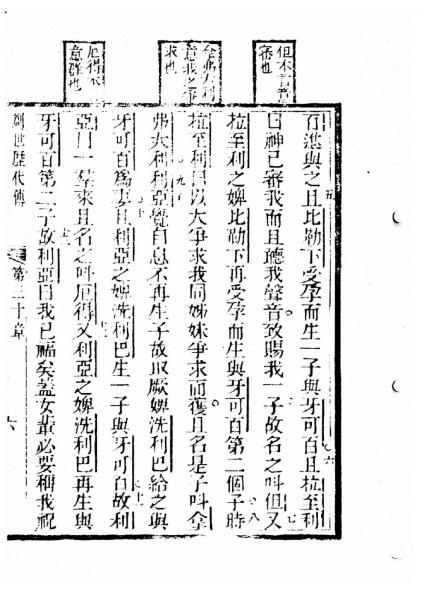 但本言音
審也
拿弗大利
意我之爭
求也
厄得本
意群也
百進與之且比勒下受孕而生一子與牙可百且拉至利
五 六
曰神已審我而且聽我聲音致賜我一子故名之呌但又
七
拉至利之婢比勒下再受孕而生與牙可百第二個子時
八
拉至利曰以大爭求我同姊妹爭求而獲且名是子呌拿
弗大利利亞覺自息不再生子故取厥婢洗利巴給之與
九
牙可百爲妻且利亞之婢洗利巴生一子與牙可百故利
十
亞曰一羣來且名之呌厄得又利亞之婢洗利巴再生與
十二
牙可百第二子故利亞曰我已福矣蓋女輩必要稱我祝
十三
創世歷代傳
第三十章
六